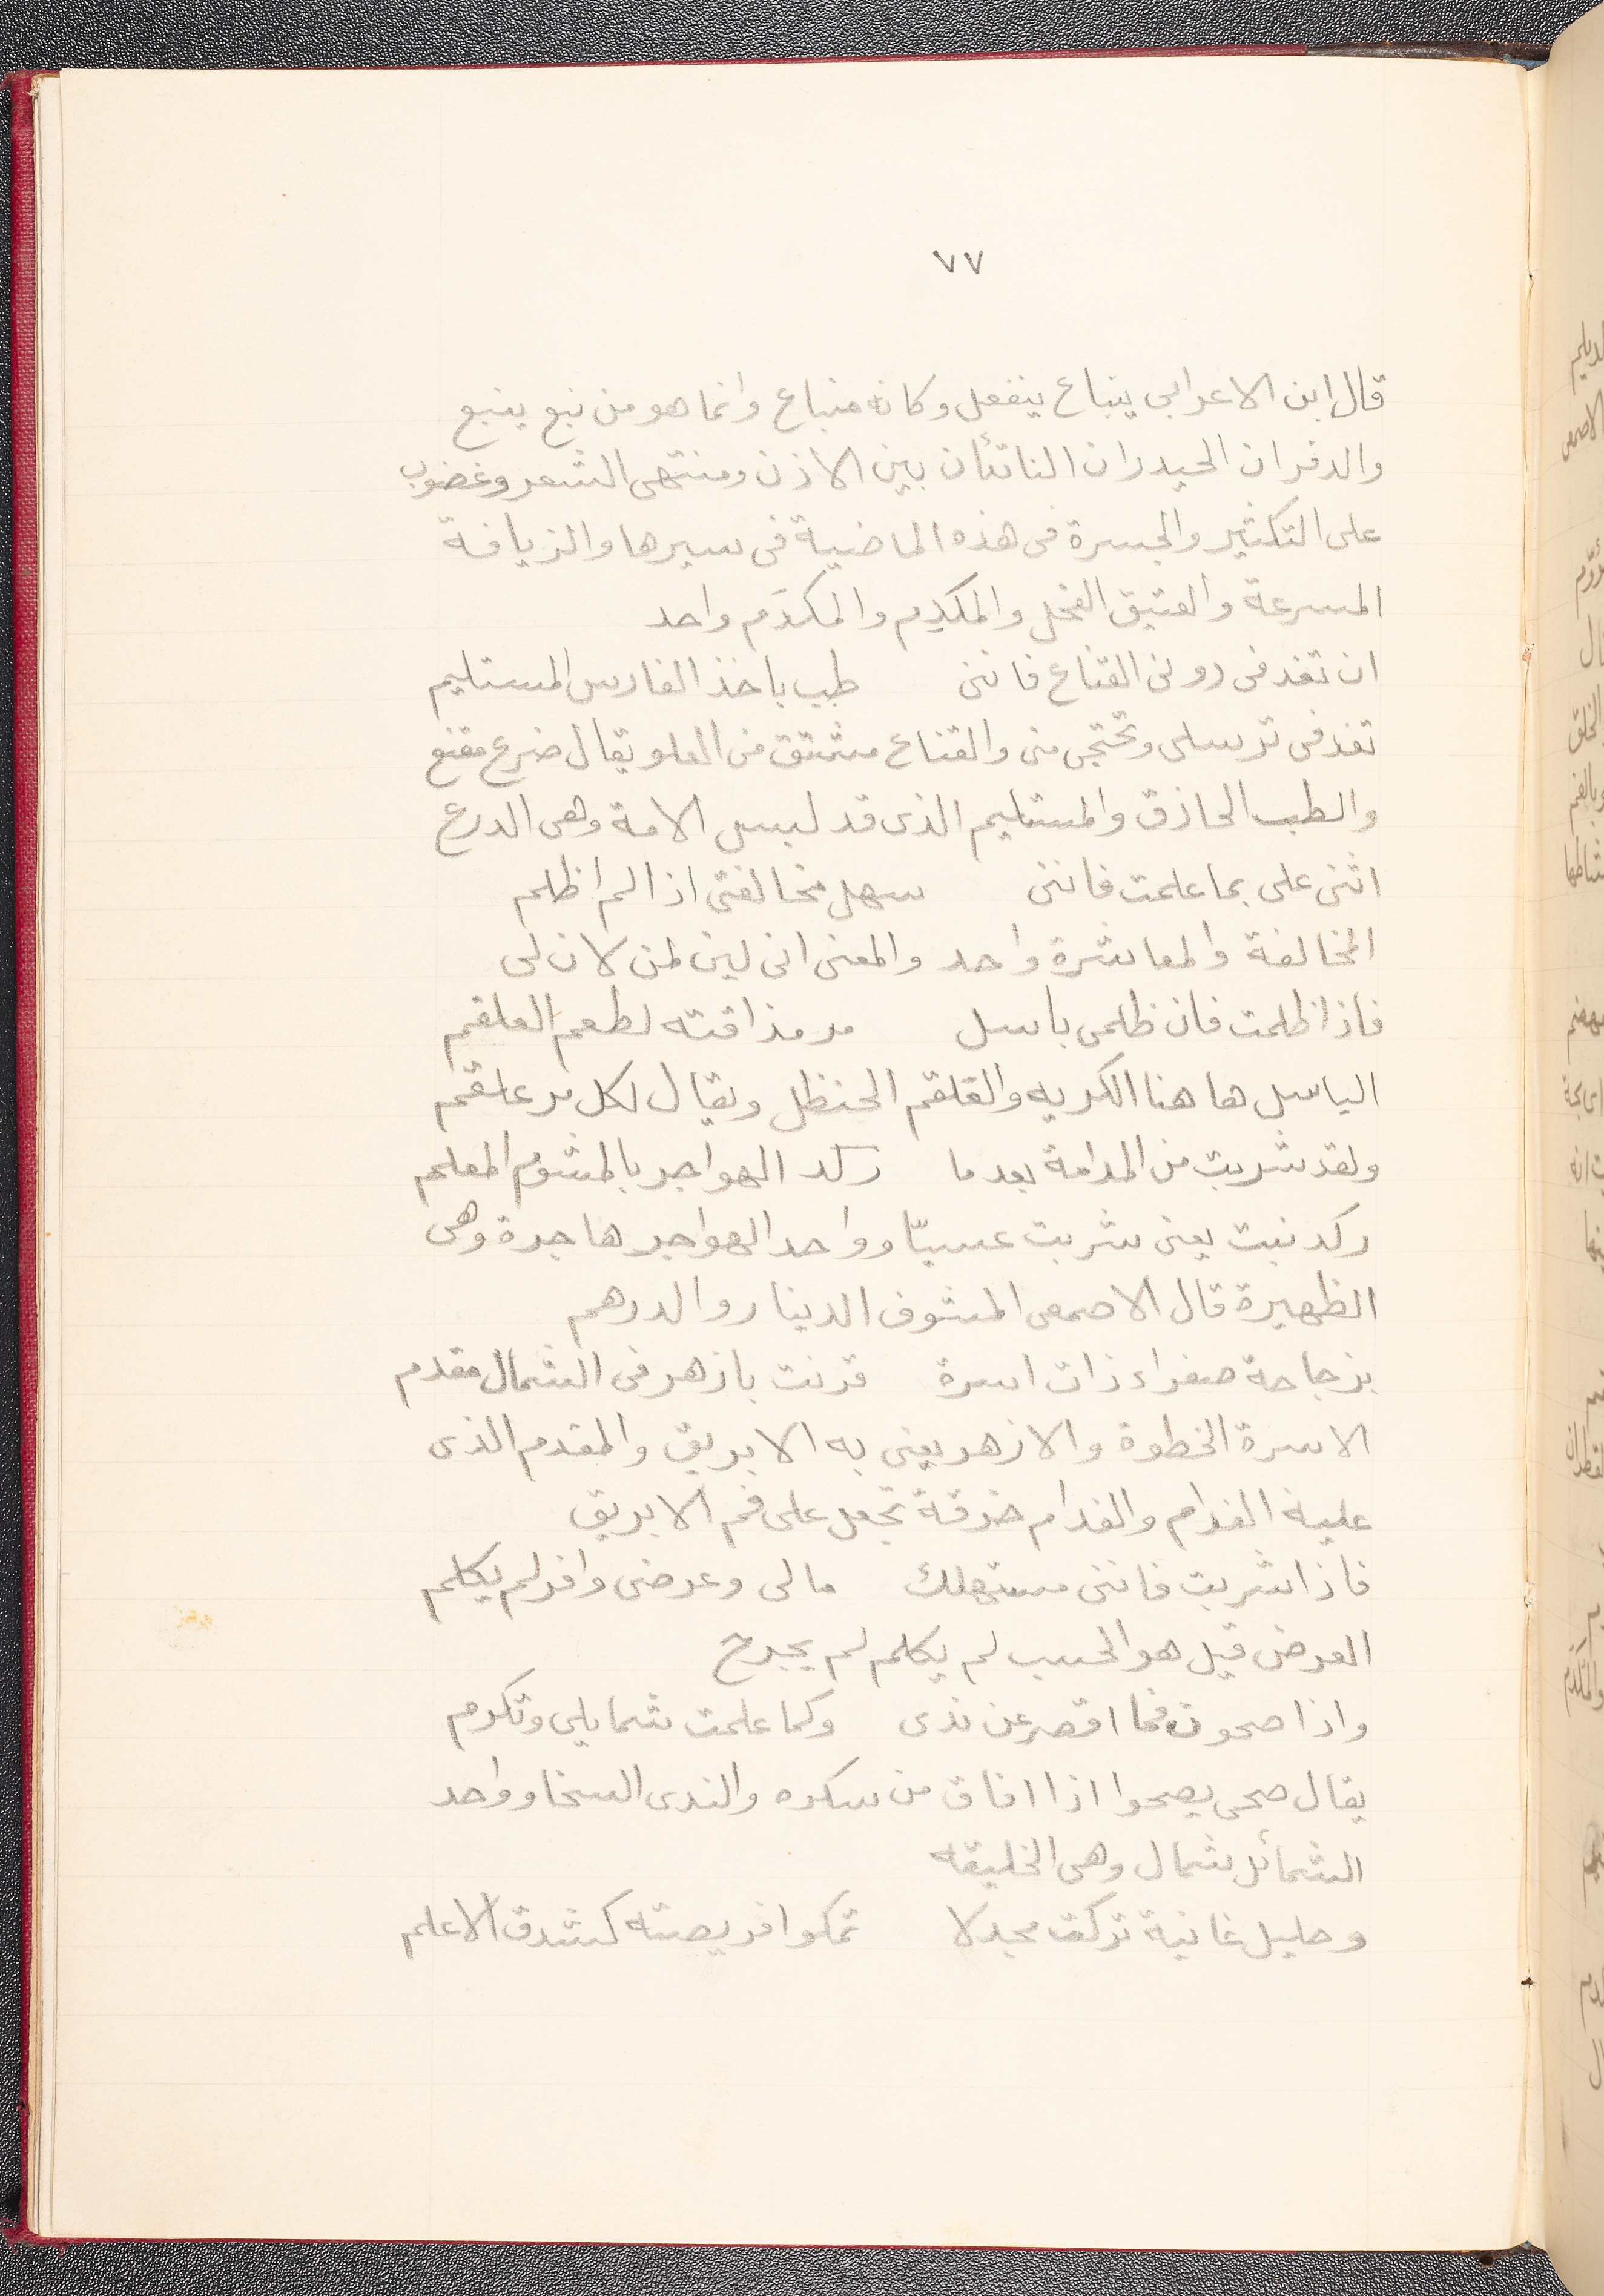 ٧٧
قال ابن الاعرابي ينباع ينفعل وكانه منباع وانما هو من نبع ينبع
والدفران الحيدران الناتئان بين الاذن ومنتهى الشعر وغضوب
على التكثير والجسرة فى هذه الماضية فى سيرها والزيافة
المسرعة والفتيق الفحل والمكدِم والمكدَم واحد
ان تغدفى دونى القناع فاننى طب باخذ الفارس المستليم
تغدفى ترسلى وتحتجى منى والقناع مشتق من العلو يقال ضرع مقنع
والطب الحاذق والمستليم الذى قد لبس الامة وهى الدرع
اثنى على بما علمت فاننى سهل مخالفتى اذا لم اظلم
المخالفة والمعاشرة واحد والمعنى انى لين لمن لان لى
فاذا ظلمت فان ظلمى باسل مر مذاقته لطعم العلقم
الباسل هاهنا الكريه والقلقم الحنظل ويقال لكل مر علقم
ولقد شربت من المدامة بعدما ركد الهواجر بالمشوم المعلم
ركد نبت يعنى شربت عسيّا وواحد الهواجر هاجرة وهى
الظهيرة قال الاصمعى المشوف الدينار والدرهم
بزجاجة صفراء ذات اسرة قرنت بازهر فى الشمال مقدم
الاسرة الخطوة والازهر يعنى به الابريق والمقدم الذى
عليه الفدام والفدام خرقة تجعل على فم الابريق
فاذا شربت فاننى مستهلك مالى وعرضى وافر لم يكلم
العرض قيل هو الحسب لم يكلم لم يجرح
واذا صحوت فما اقصر عن ندى وكما علمت شمايلى وتكرم
يقال صحى يصحوا اذا افاق من سكره والندى السخا وواحد
الشمائل شمال وهى الخليقه
وحليل غانية تركت مجدلا تمكوا فريصته كشدق الاعلم